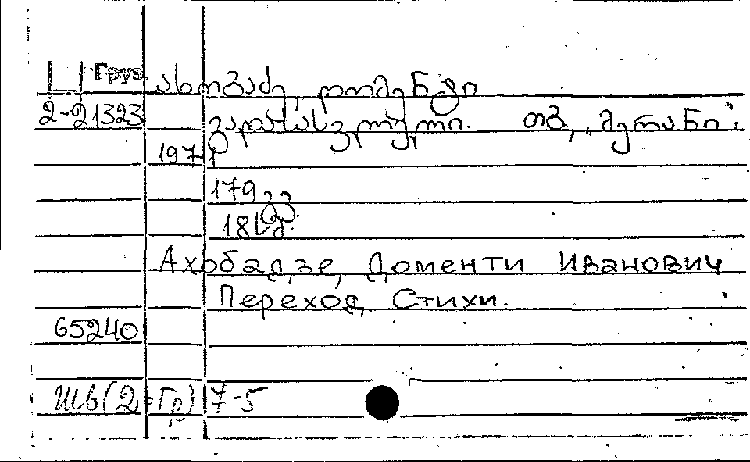 Груз ახობაძე, დომენტი
2-21323 გადასასვლელი. თბ, „მერანი",
1971
179 გვ
18 სმ.
Ахобадзе, Доменти Иванович
Переход. Стихи.
65240
Шв(2=Гр) 7-5